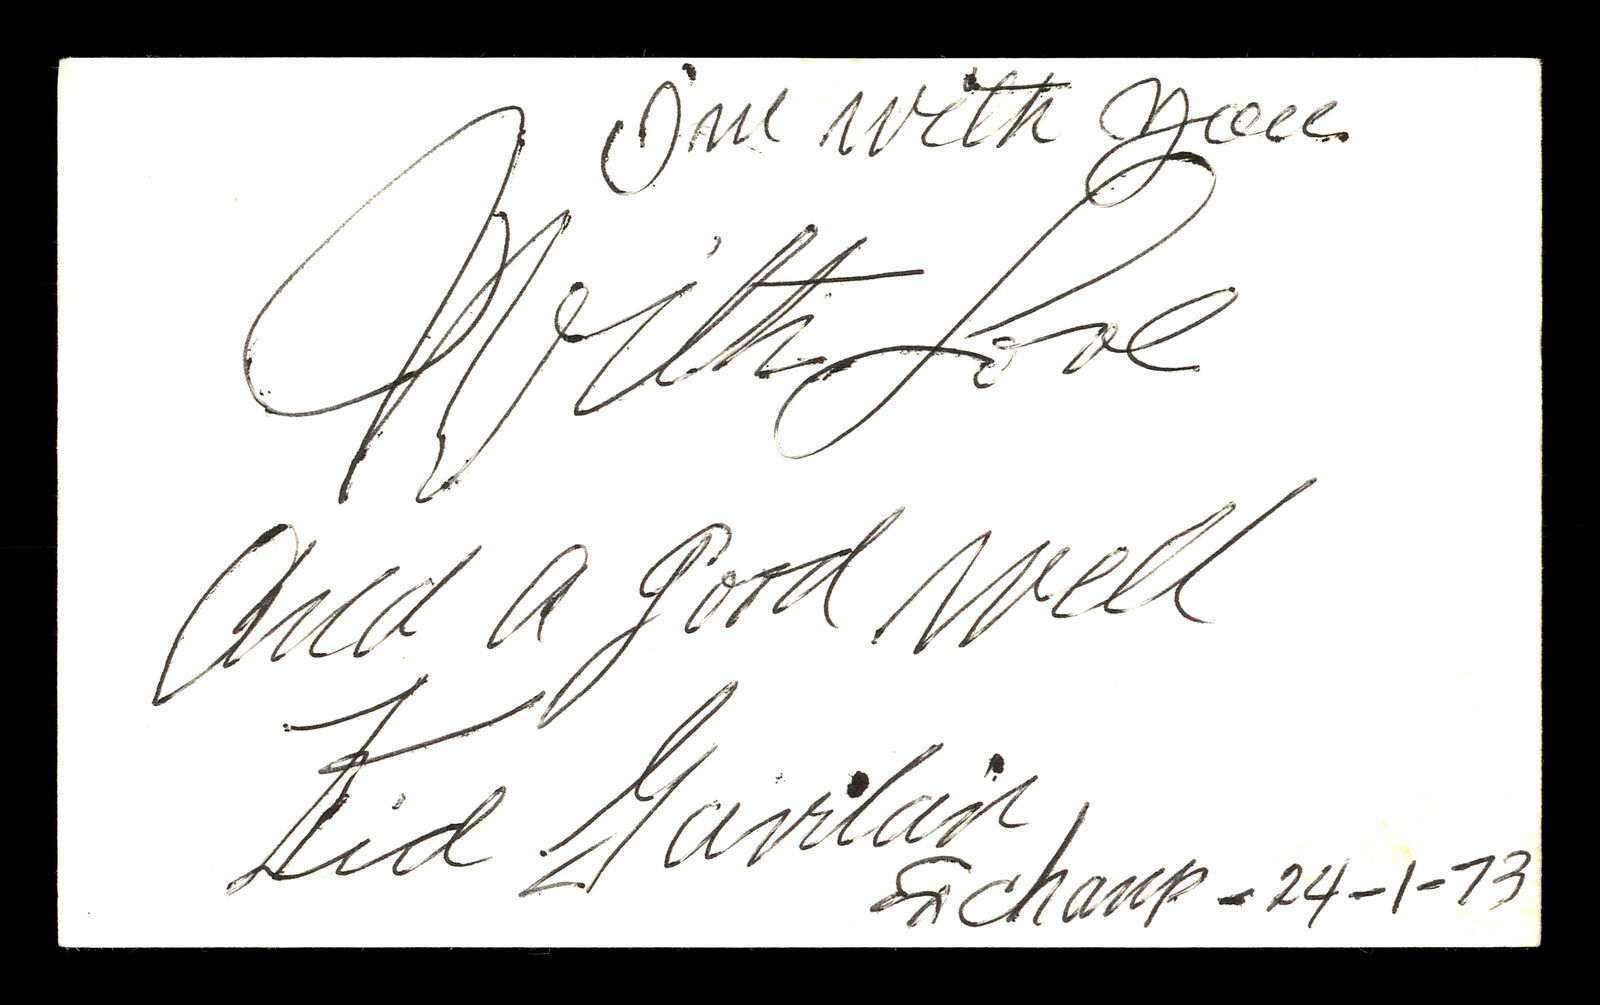 I'm with you
With Love
And a good well
Kid Gavilan
Ex champ - 24-1-73